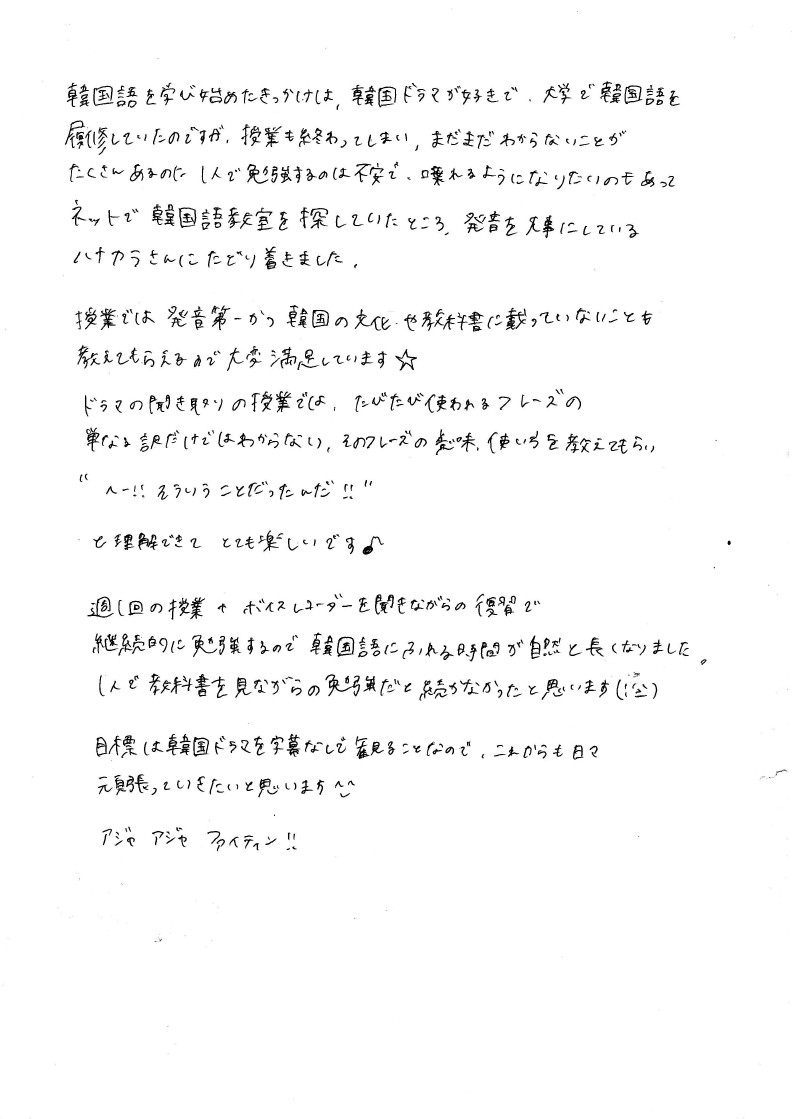 韓国語を学び始めたきっかけは、韓国ドラマが好きで、大学で韓国語を
履修していたのですが、授業も終わってしまい、まだまだわからないことが
たくさんあるのに1人で勉強するのは不安で、喋れるようになりたいのもあって
ネットで韓国語教室を探していたところ、発音を大事にしている
ハナカラさんにたどり着きました。
授業では発音第一かつ韓国の文化や教科書に載っていないことも
教えてもらえるので大変満足しています☆
ドラマの聞き取りの授業では、たびたび使われるフレーズの
単なる訳だけではわからない、そのフレーズの意味、使い方を教えてもらい
"へー!!そういうことだったんだ!!"
と理解できて とても楽しいです♪
週1回の授業+ボイスレコーダーを聞きながらの復習で
継続的に勉強するので韓国語にふれる時間が自然と長くなりました。
1人で教科書を見ながらの勉強だと続かなかったと思います(笑)
目標は韓国ドラマを字幕なしで観ることなので、これからも日々
頑張っていきたいと思います^^
アジャ アジャ ファイティン!!